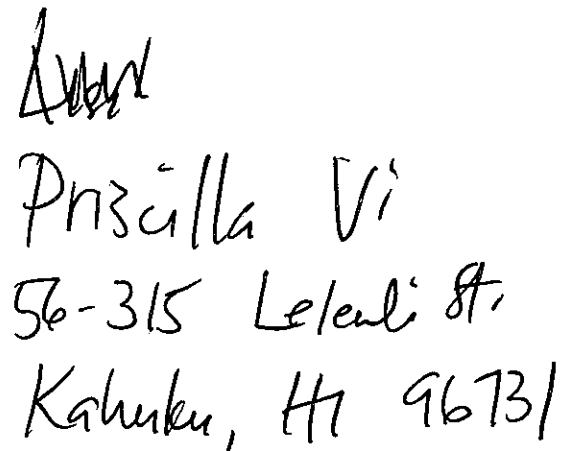 Priscilla Vi
56-315 Leleuli St.
Kahuku, HI 96731